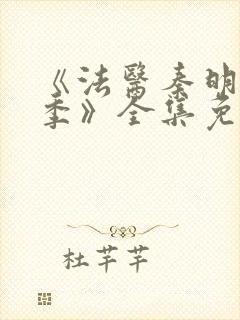 《法醫秦明
季》全集免
杜芊芊